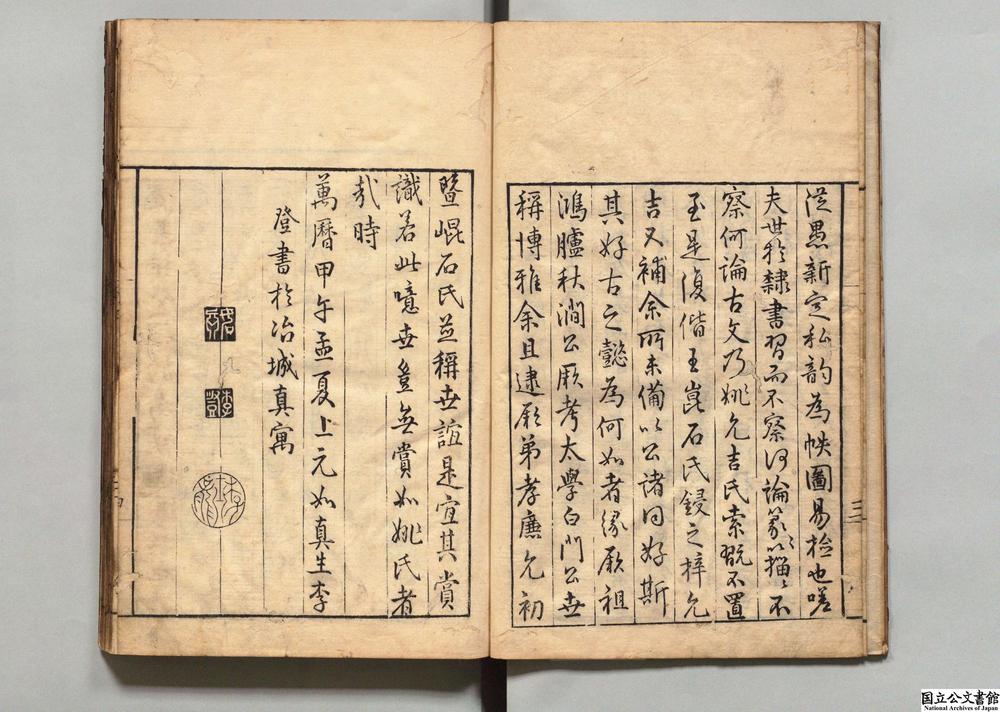 從愚新定私韵為帙圖易撿也嗟
夫世於隸書習而不察何論篆籀籀不
察何論古文乃姚允吉氏索翫不置
至是復偕王崑石氏鋟之梓允
吉又補余所未備以公諸同好斯
其好古之懿為何如者緣厥祖
鴻臚秋澗公厥考太學白門公世
稱博雅余且逮厥弟孝廉允初
暨崐石氏並稱世誼是宜其賞
識若此噫世豈無賞如姚氏者
哉時
萬曆甲午孟夏上元如真生李
登書於冶城真寓
李登
三
國立公文書館
National Archives of Japan